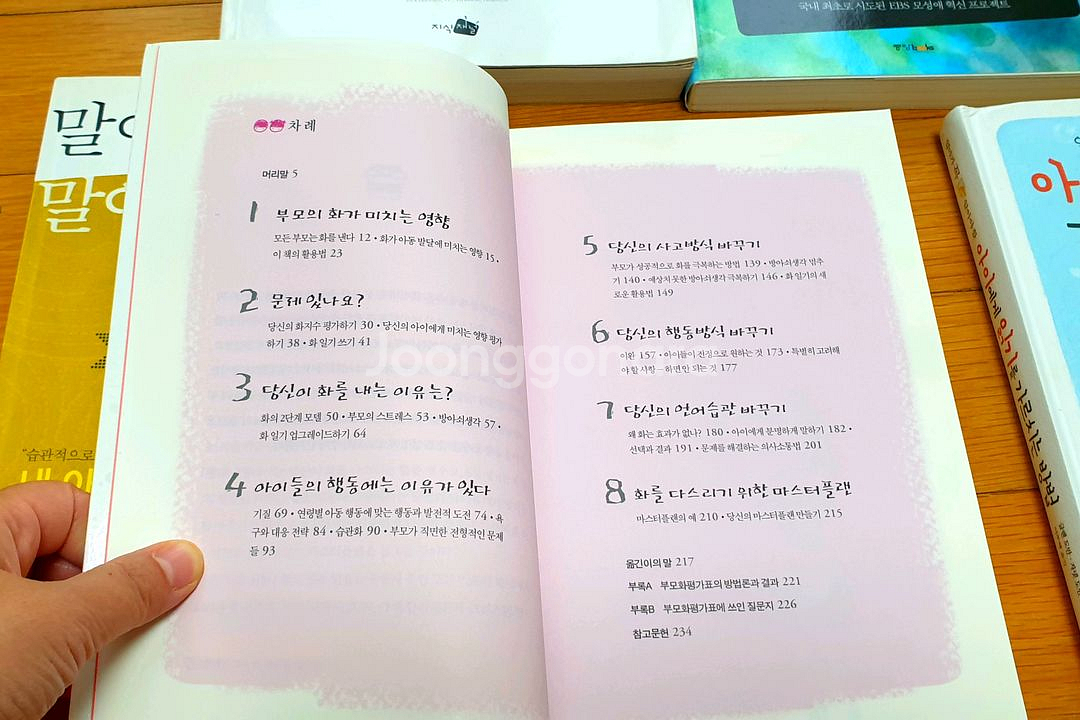 지식채널
국내 최초로 시도된 EBS 모성애 혁신 프로젝트
말
말
"습관적으로
차례
머리말 5
1 부모의 화가 미치는 영향
모든 부모는 화를 낸다 12 • 화가 아동 발달에 미치는 영향 15 •
이 책의 활용법 23
2 문제 있나요?
당신의 화지수 평가하기 30 • 당신의 아이에게 미치는 영향 평가
하기 38 • 화 일기 쓰기 41
3 당신이 화를 내는 이유는?
화의 2단계 모델 50 • 부모의 스트레스 53 • 방아쇠생각 57 •
화 일기 업그레이드하기 64
4 아이들의 행동에는 이유가 있다
기질 69 • 연령별 아동 행동에 맞는 행동과 발전적 도전 74 • 욕
구와 대응 전략 84 • 습관화 90 • 부모가 직면한 전형적인 문제
들 93
5 당신의 사고방식 바꾸기
부모가 성공적으로 화를 극복하는 방법 139 • 방아쇠생각 멈추
기 140 • 예상치 못한 방아쇠생각 극복하기 146 • 화 일기의 새
로운 활용법 149
6 당신의 행동방식 바꾸기
이완 157 • 아이들이 진정으로 원하는 것 173 • 특별히 고려해
야 할 사항 – 하면 안 되는 것 177
7 당신의 언어습관 바꾸기
왜 화는 효과가 없나? 180 • 아이에게 분명하게 말하기 182 •
선택과 결과 191 • 문제를 해결하는 의사소통법 201
8 화를 다스리기 위한 마스터플랜
마스터플랜의 예 210 • 당신의 마스터플랜 만들기 215
옮긴이의 말 217
부록A 부모화평가표의 방법론과 결과 221
부록B 부모화평가표에 쓰인 질문지 226
참고문헌 234
아이에게 읽기를 가르치는 방법
Joonggon